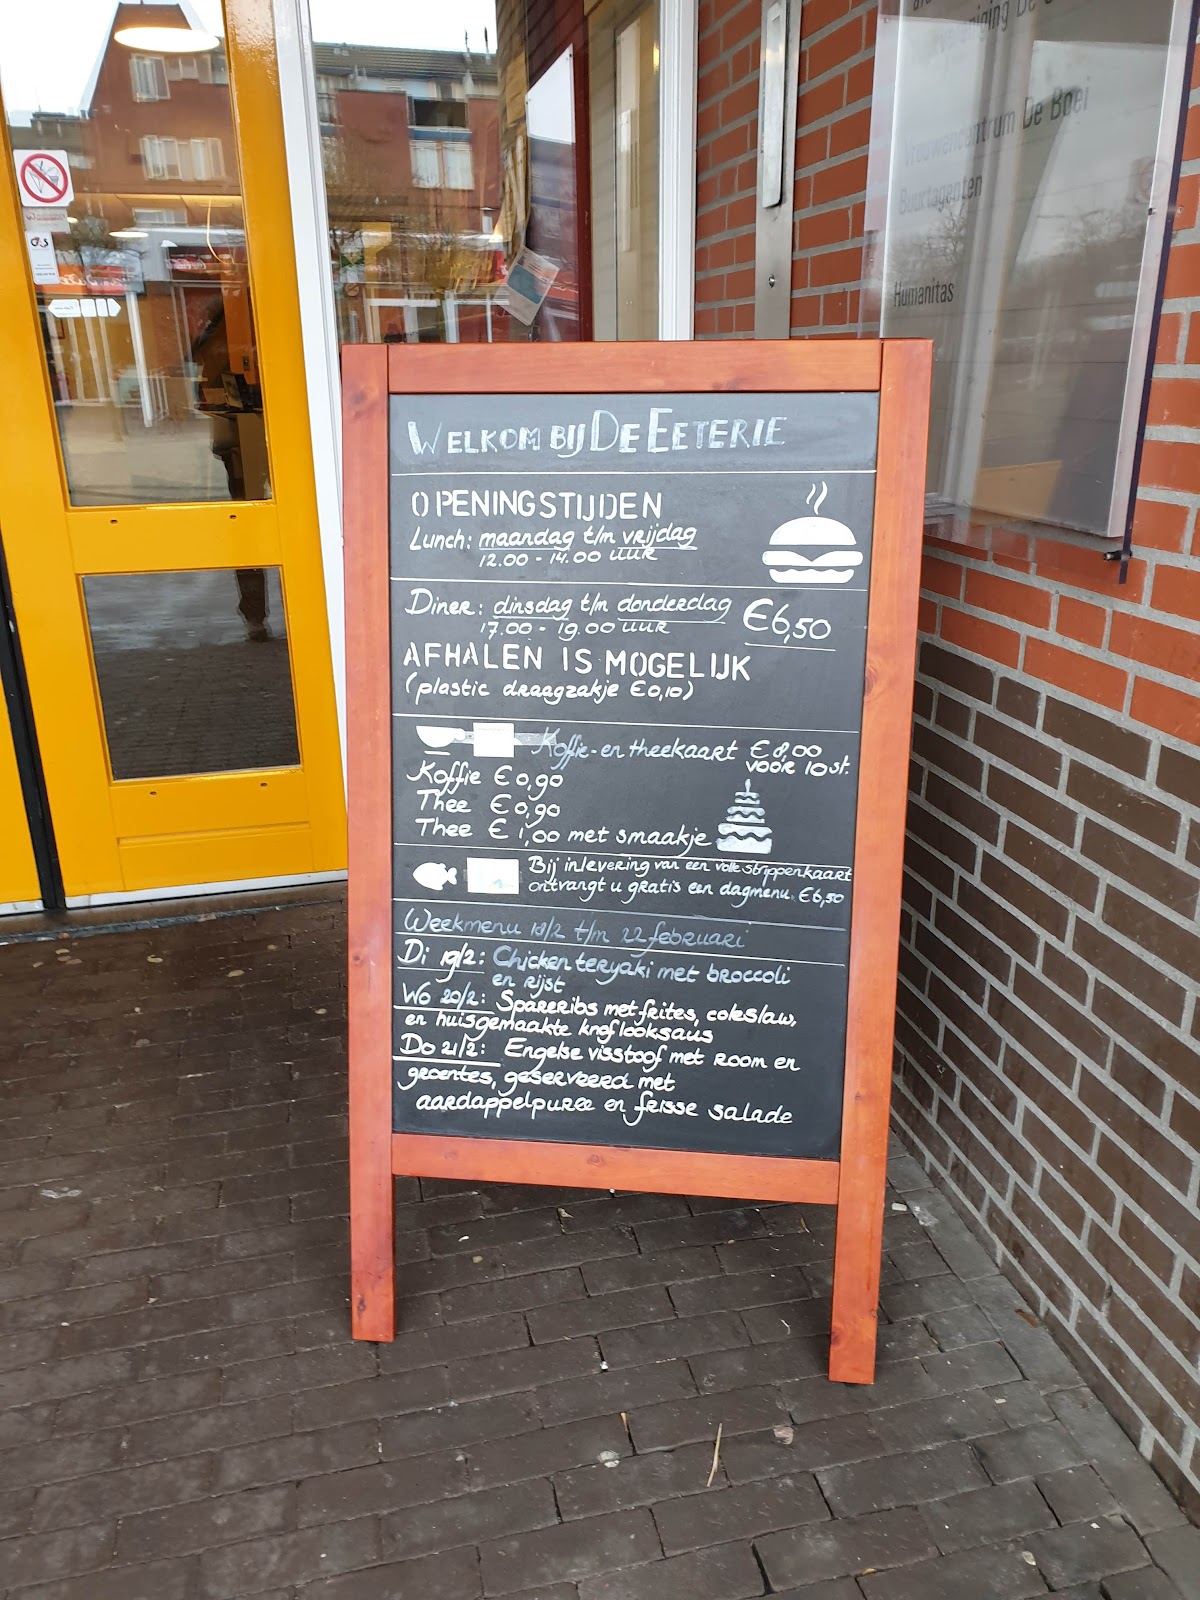 Vrouwencentrum De Boei
Buurtagenten
Humanitas
WELKOM BIJ DE EETERIE
OPENINGSTIJDEN
Lunch: maandag t/m vrijdag
12.00 - 14.00 uur
Diner: dinsdag t/m donderdag
17.00 - 19.00 uur
€6,50
AFHALEN IS MOGELIJK
(plastic draagzakje €0,10)
Koffie- en theekaart €8,00
voor 10 st.
Koffie €0,90
Thee €0,90
Thee €1,00 met smaakje
Bij inlevering van een volle strippenkaart
ontvangt u gratis een dagmenu. €6,50
Weekmenu 18/2 t/m 22 februari
Di 19/2: Chicken teryaki met broccoli
en rijst
Wo 20/2: Spareribs met frites, coleslaw,
en huisgemaakte knoflooksaus
Do 21/2: Engelse visstoof met room en
groentes, geserveerd met
aardappelpuree en frisse salade